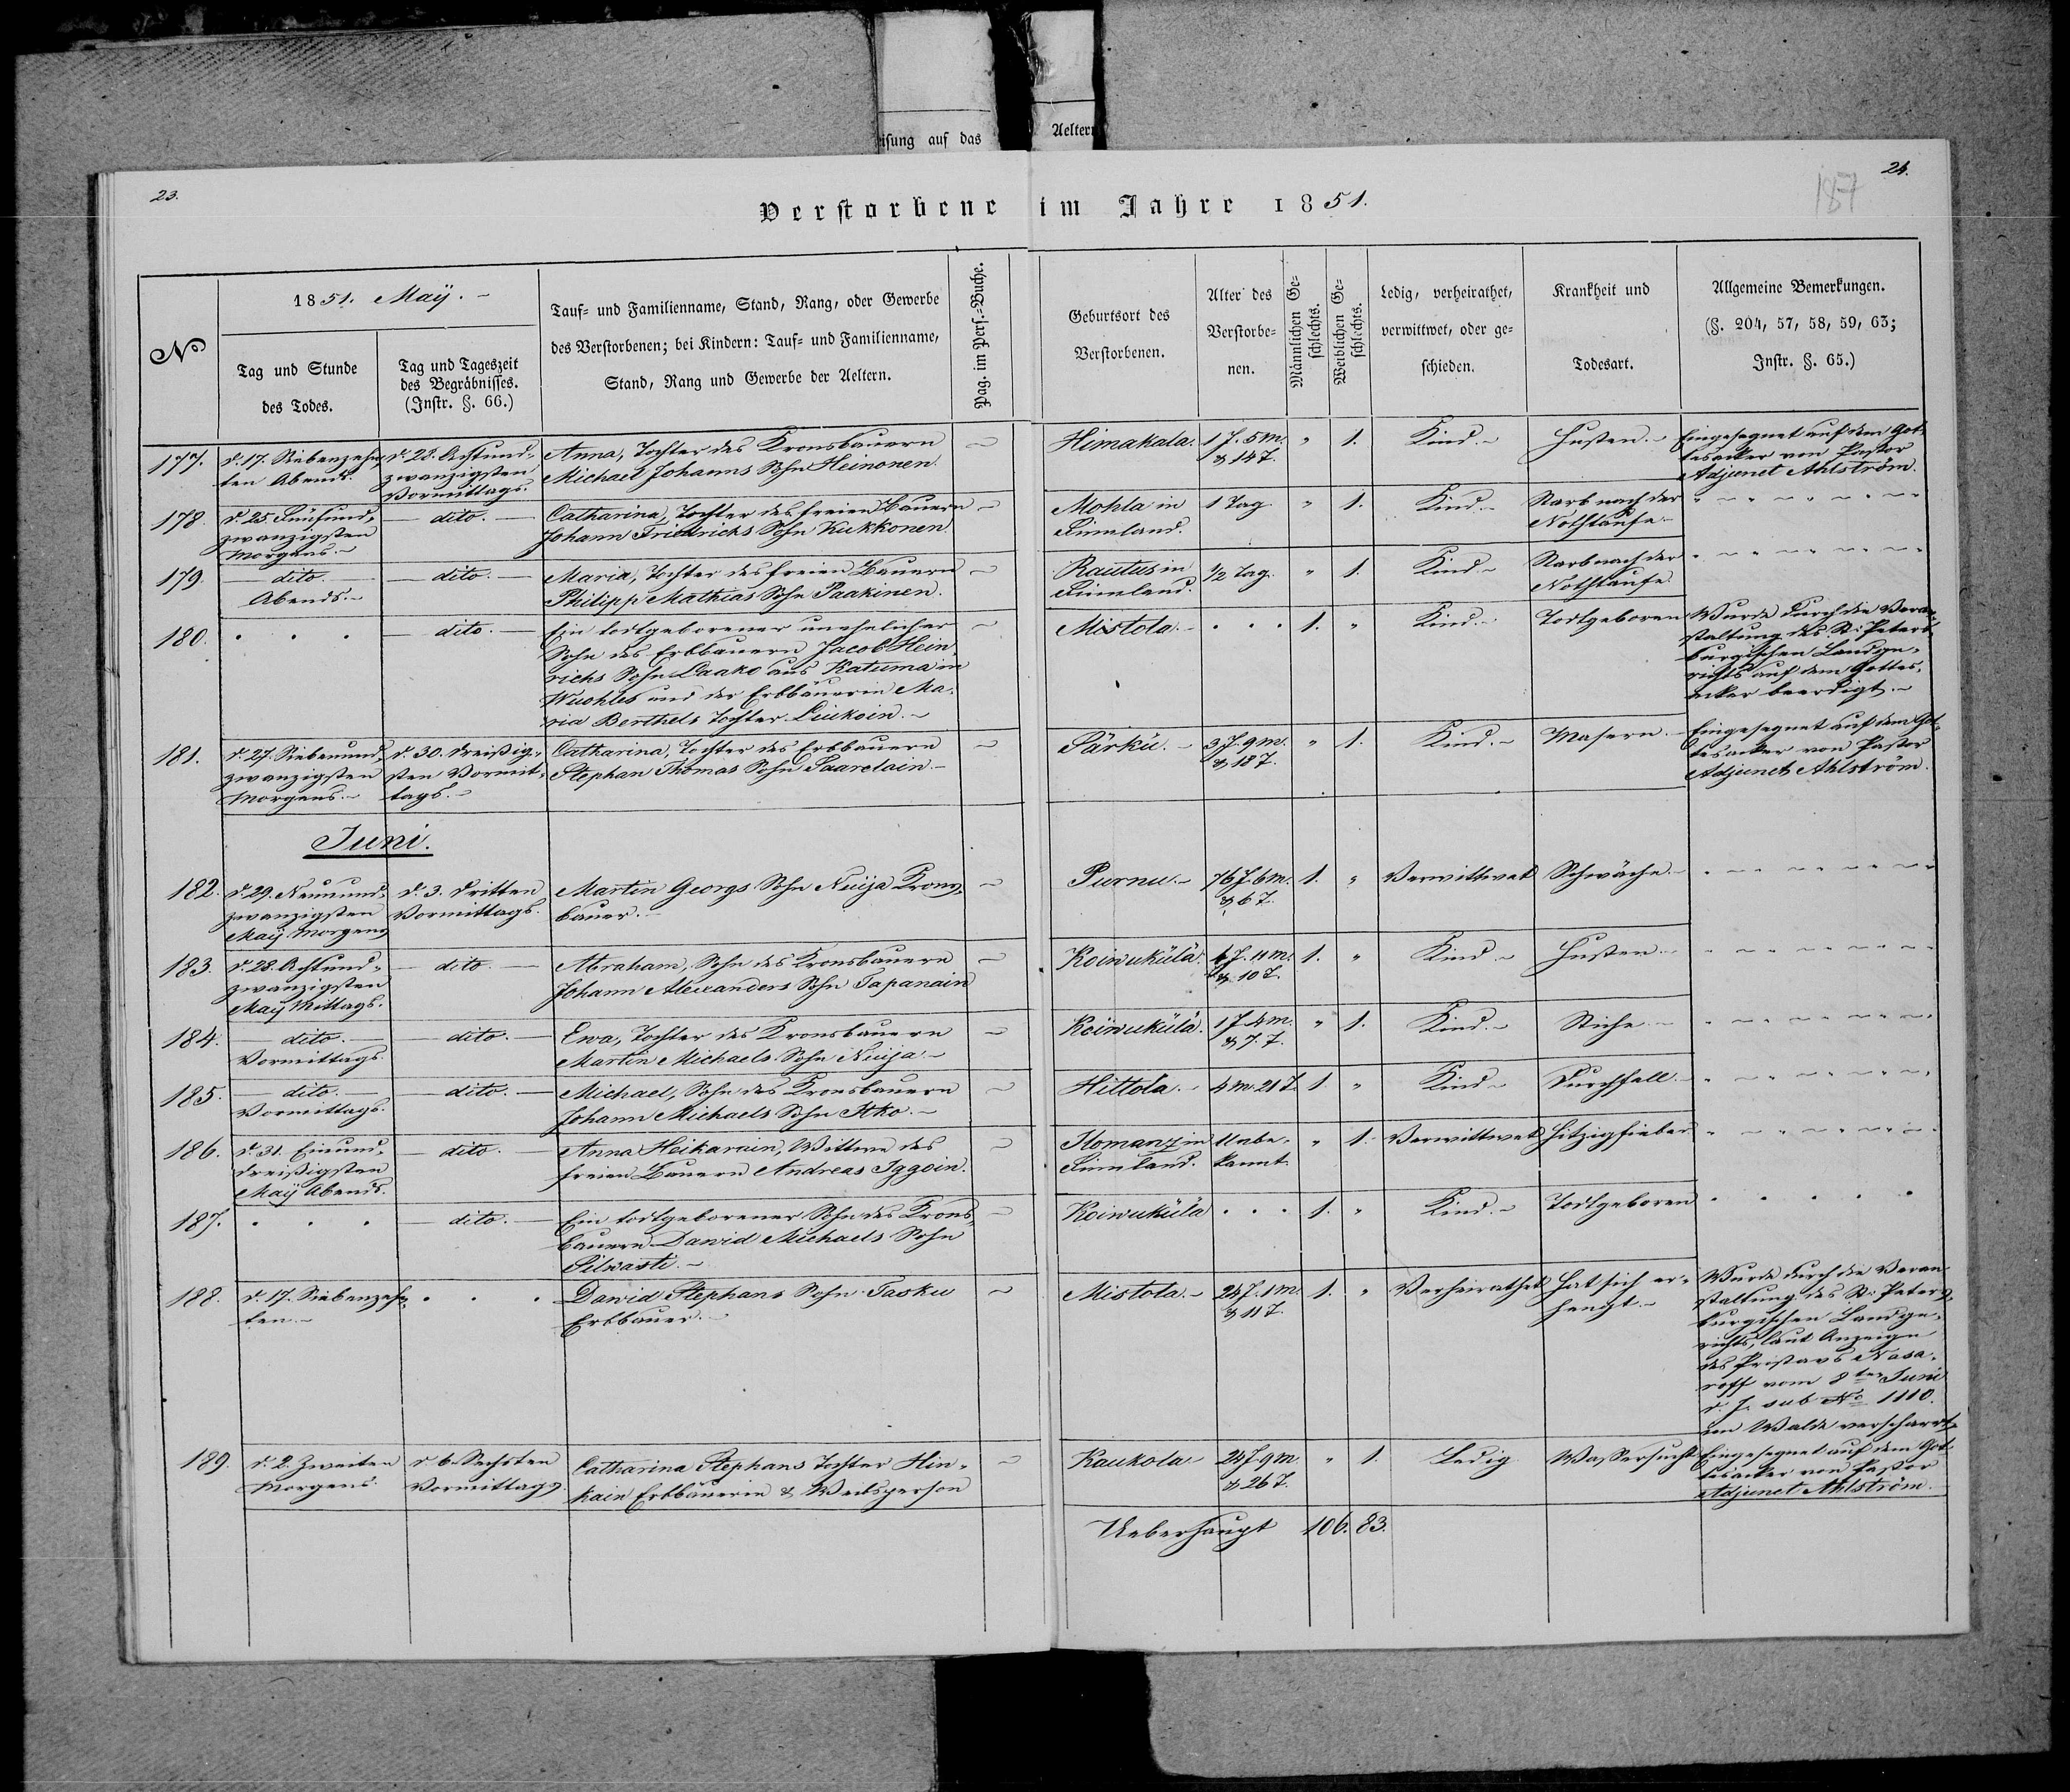 isung auf das
Aeltern
23.
24.
187
Verstorbene im Jahre 1851.
N
1851. Maÿ.
Tag und Stunde
des Todes.
Tag und Tageszeit
des Begräbnisses.
(Instr. §. 66.)
Tauf= und Familienname, Stand, Rang, oder Gewerbe
des Verstorbenen; bei Kindern: Tauf= und Familienname,
Stand, Rang und Gewerbe der Aeltern.
Pag. im Pers.=Buche.
Geburtsort des
Verstorbenen.
Alter des
Verstorbe=
nen.
Männlichen Ge=
schlechts.
Weiblichen Ge=
schlechts.
Ledig, verheirathet,
verwittwet, oder ge=
schieden.
Krankheit und
Todesart.
Allgemeine Bemerkungen.
(§. 204, 57, 58, 59, 63;
Instr. §. 65.)
177.
d. 17. Siebenzehn
ten Abends.
d. 28. Achtund=
zwanzigsten
Vormittags.
Anna, Tochter des Kronsbauern
Michael Johanns Sohn Heinonen.
Himakala.
1 J. 5 m.
& 14 T.
" 1.
Kind.
Husten.
Eingesegnet auf dem Got=
tesacker von Pastor
Adjunct Ahlström.
178.
d. 25. Fünfund=
zwanzigsten
Morgens.
dito.
Catharina, Tochter des freien Bauern
Johann Friedrichs Sohn Kukkonen.
Mohla in
Finnland.
1 Tag
" 1.
Kind.
Starb nach der
Nothtaufe.
179.
dito.
Abends.
dito.
Maria, Tochter des freien Bauern
Philipp Mathias Sohn Paakinen.
Rautus in
Finnland.
1/2 Tag.
" 1.
Kind.
Starb nach der
Nothtaufe.
180.
. . .
dito.
Ein todtgeborener unehelicher
Sohn des Erbbauern Jacob Hein=
richs Sohn Laako aus Katuma in
Wuohles und der Erbbäuerin Ma=
ria Berthels Tochter Liukoin.
Mistola.
. . . 1. "
Kind.
Todtgeboren
Wurde durch die Veran=
staltung des St: Peters=
burgischen Landge=
richts auf dem Gottes=
acker beerdigt.
181.
d. 27. Siebenund=
zwanzigsten
Morgens.
d. 30. Dreißig=
sten Vormit=
tags.
Catharina, Tochter des Erbbauern
Stephan Thomas Sohn Saarelain.
Särkü.
3 J. 9 m.
& 18 T.
" 1.
Kind.
Masern.
Eingesegnet auf dem Got=
tesacker von Pastor
Adjunct Ahlström.
Juni.
182.
d. 29. Neunund=
zwanzigsten
Maÿ Morgens
d. 3. Dritten
Vormittags.
Martin Georgs Sohn Neuja Krons=
bauer.
Purnu.
76 J. 6 m.
& 6 T.
1. "
Verwittwet
Schwäche.
183.
d. 28. Achtund=
zwanzigsten
Maÿ Mittags.
dito.
Abraham, Sohn des Kronsbauern
Johann Alexanders Sohn Tapanain
Koiwukülä.
6 J. 11 m.
& 10 T.
1. "
Kind
Husten.
184.
dito.
Vormittags.
dito.
Ewa, Tochter des Kronsbauern
Martin Michaels Sohn Neuja.
Koiwukülä.
1 J. 4 m.
& 7. T.
" 1.
Kind.
Stiche.
185.
dito.
Vormittags.
dito.
Michael, Sohn des Kronsbauern
Johann Michaels Sohn Itko.
Hittola.
4 m. 21 T.
1. "
Kind
Durchfall.
186.
d. 31. Einund=
dreißigsten
Maÿ Abends.
dito.
Anna Heikarain, Wittwe des
freien Bauern Andreas Iggoin.
Ilomanz in
Finnland.
Unbe=
kannt.
" 1.
Verwittwet
Hitzigfieber
187.
. . .
dito.
Ein todtgeborener Sohn des Krons=
bauern Dawid Michaels Sohn
Pilwasti.
Koiwukülä
. . . 1. "
Kind.
Todtgeboren
. . . . .
188.
d. 17. Siebenzehn=
ten.
. . .
Dawid Stephans Sohn Tasku
Erbbauer.
Mistola.
24 J. 1 m.
& 11 T.
1. "
Verheirathet
Hat sich er=
hengt.
Wurde durch die Veran=
staltung des St: Peters=
burgischen Landge=
richts, laut Anzeige
des Pristavs Nasa=
roff vom 8ten Juni
d. J. sub No 1110.
im Walde verscharrt.
189.
d. 2. Zweiten
Morgens.
d 6. Sechsten
Vormittags.
Catharina Stephans Tochter Hin=
kain Erbbäuerin & Weibsperson
Kaukola
24 J. 9 m.
& 26 T.
" 1.
Ledig
Wassersucht
Eingesegnet auf dem Got=
tesacker von Pastor
Adjunct Ahlström.
Ueberhaupt 106. 83.